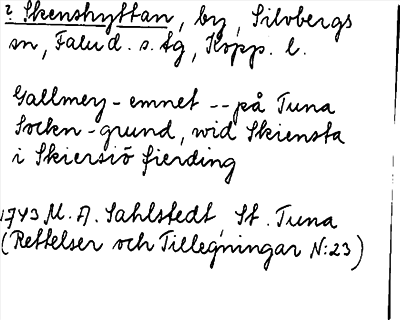 ? Skenshyttan, by, Silvbergs
sn, Falu d. s. tg, Kopp. l.
Gallmey-emnet -- på Tuna
Sockn-grund, wid Skiensta
i Skiersiö fierding
1743 M. A. Sahlstedt, St. Tuna
(Rettelser och Tillegningar N:23)